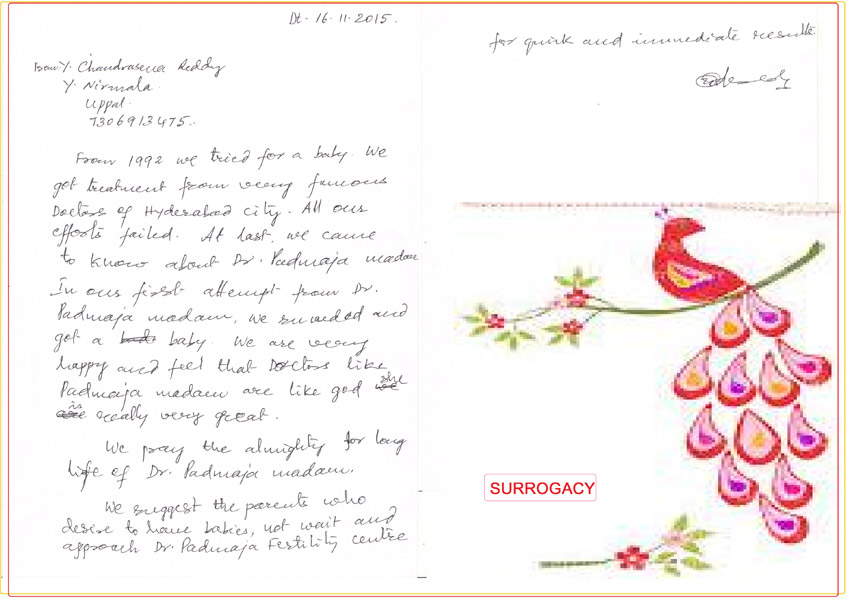 Dt. 16.11.2015.
From Y. Chandrasena Reddy
Y. Nirmala
Uppal.
7306913475.
From 1992 we tried for a baby. We
got treatment from very famous
Doctors of Hyderabad city. All our
efforts failed. At last, we came
to know about Dr. Padmaja madam
In our first attempt from Dr.
Padmaja madam, we suceeded and
got a baby. We are very
happy and feel that Doctors like
Padmaja madam are like god she
is really very great.
We pray the almighty for long
life of Dr. Padmaja madam.
We suggest the parents who
desire to have babies, not wait and
approach Dr. Padmaja Fertility centre
for quick and immediate results
SURROGACY